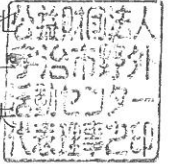 公益財団法人
宇治市野外
活動センター
代表理事之印